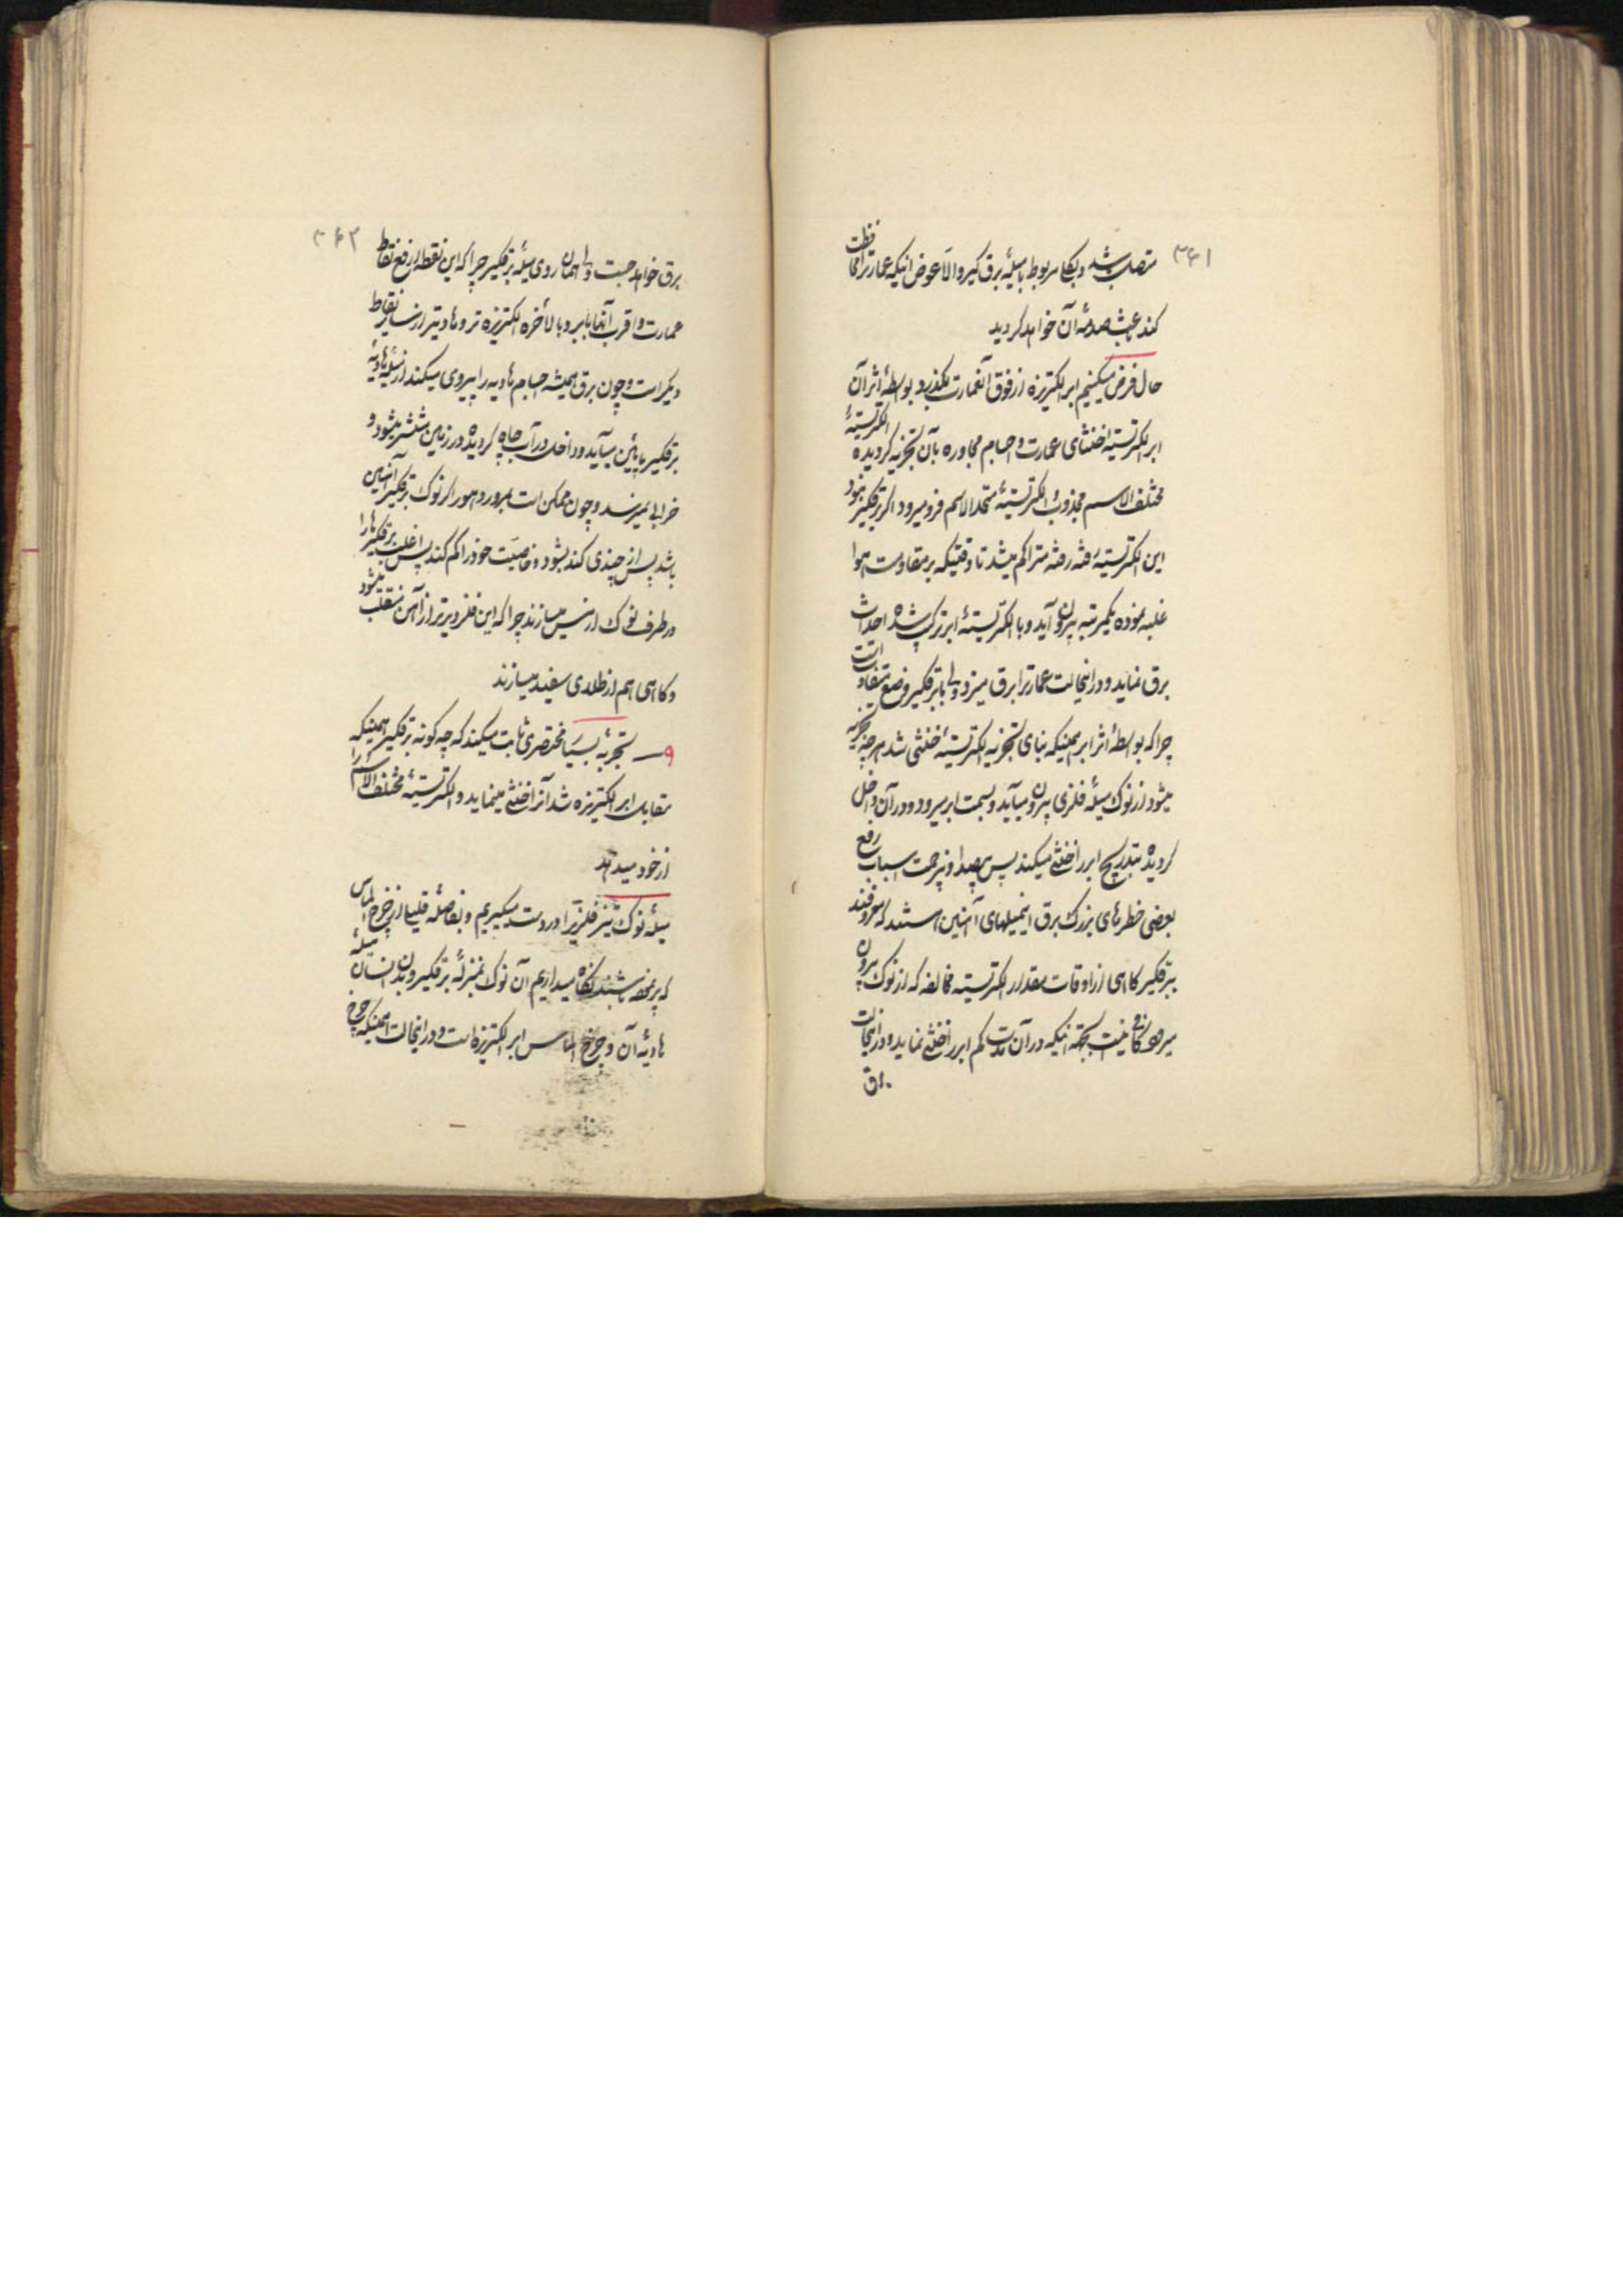 ۳۶۱
متصل باشد و بکلی مربوط با میلهٔ برق کیر والا عوض اینکه عمارترا محافظت
کند باعث صدمهٔ آن خواهد کردید
حال فرض میکنیم ابر الکتریزه از فوق آنعمارت بکذرد و بواسطهٔ اثر آن
ابر الکتریسیتهٔ خنثای عمارت و اجسام مجاوره بآن تجزیه کردیده الکتریسیتهٔ
مختلف الاسم مجذوب و الکتریسیتهٔ متحد الاسم فرو میرود اکر برقکیر نبود
این الکتریسیته رفته رفته متراکم میشد تا وقتیکه بر مقاومت هوا
غلبه نموده یکمرتبه بیرون آید و با الکتریسیتهٔ ابر ترکیب شده احداث
برق نماید و در اینحالت عمارترا برق میزد ولی با برقکیر وضع متفاوت است
چرا که بواسطهٔ اثر ابر همینکه بنای تجزیه الکتریسیتهٔ خنثی شد هر چه تجزیه
میشود از نوک میلهٔ فلزی بیرون میآید و بسمت ابر میرود و در آن داخل
کردیده بتدریج ابر را خنثی میکند پس بیصدا و بیزحمت اسباب رفع
بعضی خطرهای بزرک برق این میلهای آهنین هستند که معروفند
ببرقکیر کاهی از اوقات مقدار الکتریسیته مخالفه که از نوک بیرون
میرود کافی نیست بجهة اینکه در آن مدت کم ابر را خنثی نماید و در اینحالت
برق
۳۶۲
برق خواهد جست ولی همان روی میلهٔ برقکیر چرا که این نقطه ارفع نقاط
عمارت و اقرب آنها بابر و بالأخره الکتریزه تر و هادیتر از سایر نقاط
دیکر است و چون برق همیشه اجسام هادیه را پیروی میکند از میلهٔ هادیهٔ
برقکیر پائین میآید و داخل در آب چاه کردیده در زمین منتشر میشود و
خرابی نمیرسد و چون ممکن است بمرور دهور اکر نوک برقکیر آهنین
باشد پس از چندی کند بشود و خاصیت خود را کم کند پس اغلب برقکیرها را
در طرف نوک از مس میسازند چرا که این فلز دیرتر از آهن منقلب میشود
و کاهی هم از طلای سفید میسازند
۹ — تجربهٔ بسیار مختصری ثابت میکند که چه کونه برقکیر همینکه
مقابل ابر الکتریزه شد آنرا خنثی مینماید و الکتریسیتهٔ مختلف الاسم را
از خود میدهد
میلهٔ نوک تیز فلزیرا در دست میکیریم و بفاصلهٔ قلیل از چرخ الماس
که پر نمی‌شد نکاه میداریم آن نوک بمنزلهٔ برقکیر و بدن انسان میلهٔ
هادیهٔ آن و چرخ الماس ابر الکتریزه است و در اینحالت همینکه چرخ